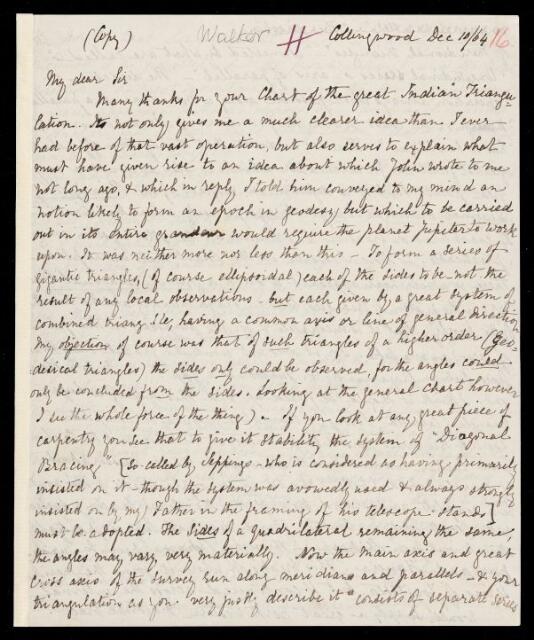 (Copy) Walker H Collingwood Dec 10/64 16
My dear Sir
Many thanks for your Chart of the great Indian Triangu-
lation. It not only gives me a much clearer idea than I ever
had before of that vast operation, but also serves to explain what
must have given rise to an idea about which John wrote to me
not long ago, & which in reply I told him conveyed to my mind an
notion likely to form an epoch in geodesy, but which to be carried
out in its entire grandeur would require the planet Jupiter to work
upon. It was neither more nor less than this – To form a series of
gigantic triangles, (of course ellipsoidal) each of the sides to be – not the
result of any local observations – but each given by a great system of
combined triangles, having a common axis or line of general direction
My objection of course was that of such triangles of a higher order (Geo-
desical triangles) the sides only could be observed, for the angles could
only be concluded from the sides. Looking at the general chart however
I see the whole force of the thing) – If you look at any great piece of
carpentry you see that to give it stability the system of "Diagonal
Bracing" [so called by Seppings – who is considered as having primarily
insisted on it – though the system was avowedly used & always strongly
insisted on by my Father in the framing of his telescope stands]
must be adopted. The Sides of a quadrilateral remaining the same,
the angles may vary very materially. Now the main axis and great
cross axis of the survey run along meridians and parallels – & your
triangulation as you very justly describe it "consists of separate series